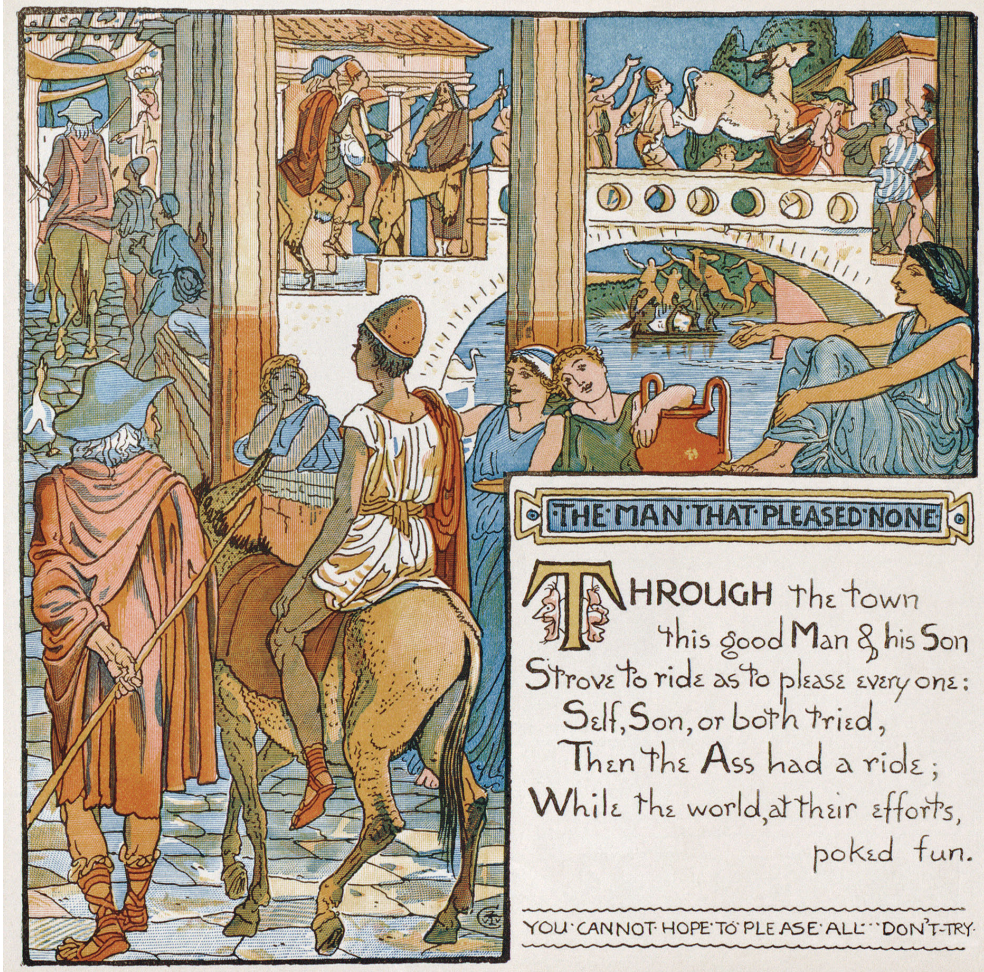 THE·MAN·THAT·PLEASED·NONE
THROUGH the town
this good Man & his Son
Strove to ride as to please every one:
Self, Son, or both tried,
Then the Ass had a ride;
While the world, at their efforts,
poked fun.
YOU·CANNOT·HOPE·TO·PLEASE·ALL··DON'T·TRY·